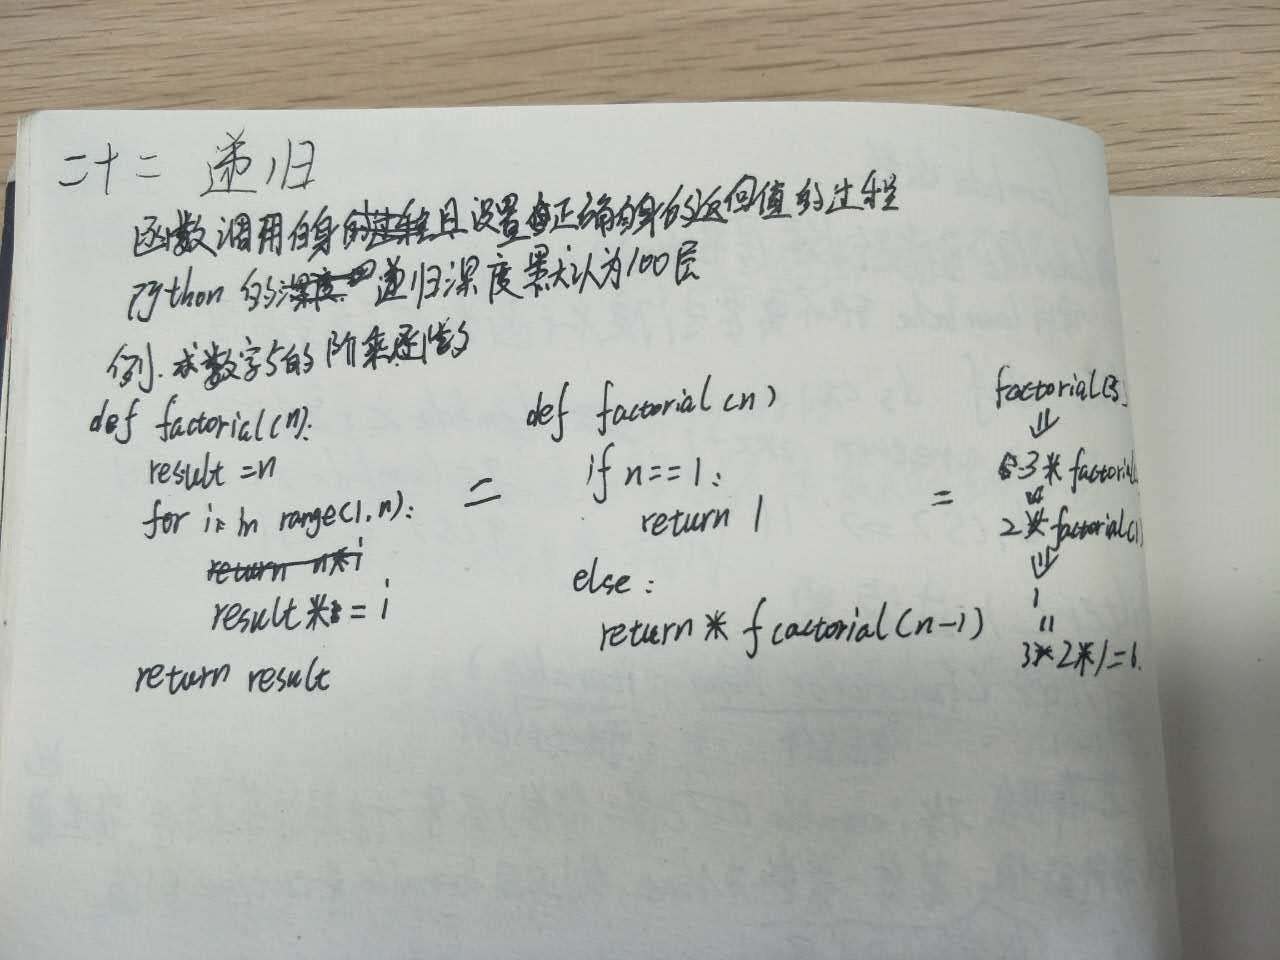 二十二 递归
函数调用自身的过程且设置正确自身的返回值的过程
Python的深度递归深度默认为100层
例.求数字5的阶乘
def factorial(n):
result = n
for i in range(1,n):
return n*i
result *= i
return result
=
def factorial(n)
if n==1:
return 1
else:
return * factorial(n-1)
=
factorial(3)
⇓
3 * factorial(
⇓
2 * factorial(1)
⇓
1
=
3*2*1=6